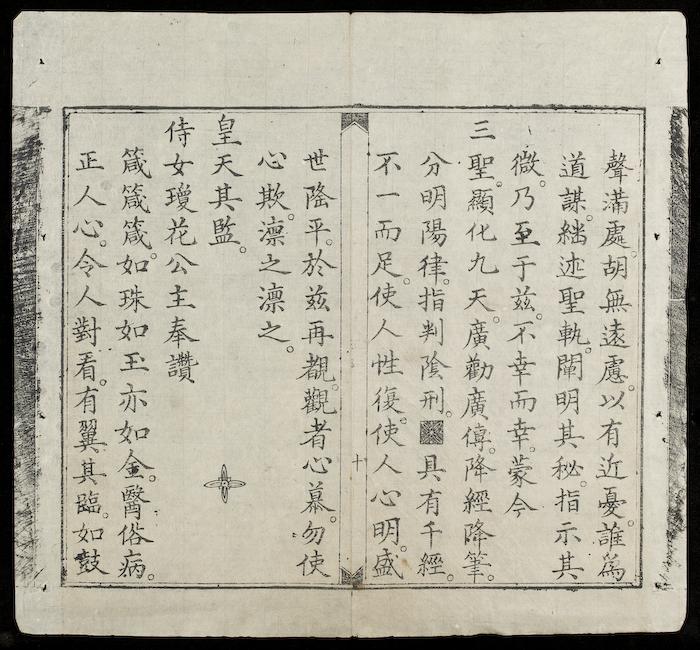 聲滿處。胡無遠慮。以有近憂。誰爲
道謀。繼述聖軌。闡明其秘。指示其
微。乃至于兹。不幸而幸。蒙今
三聖。顯化九天。廣勸廣傳。降經降筆。
分明陽律。指判陰刑。具有千經。
不一而足。使人性復。使人心明。盛
十
世隆平。於兹再覩。觀者心慕。勿使
心欺。凛之凛之。
皇天其監。
侍女瓊花公主奉讚
箴箴箴。如珠如玉亦如金。醫俗病。
正人心。令人對看。有翼其臨。如鼓